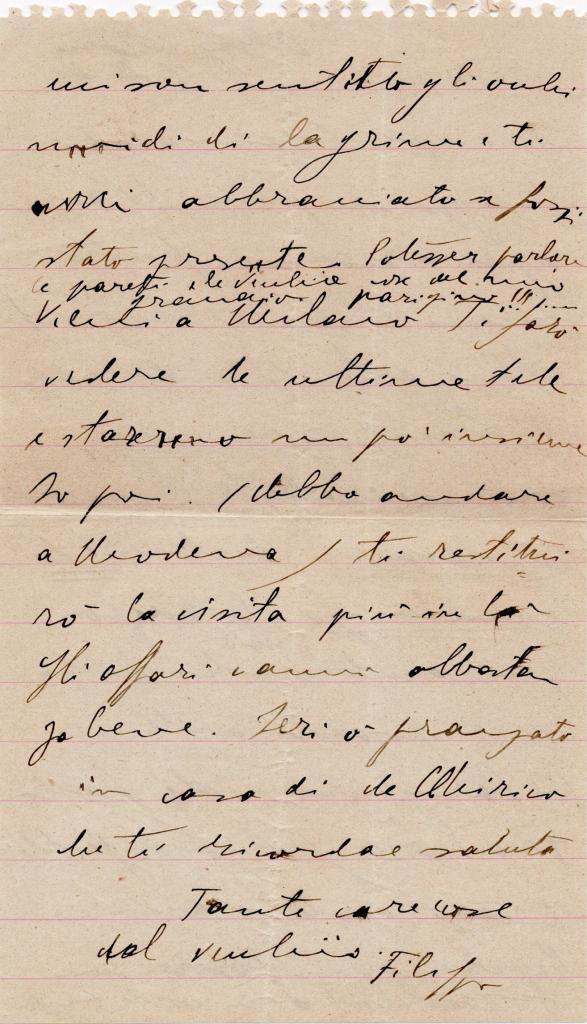 mi son sentito gli occhi
umidi di lagrime e ti
avrei abbracciato se fossi
stato presente. Potesser parlare
le pareti del vecchio
granaio parigino!!!
Vieni a Milano Ti farò
vedere le ultime tele
e staremo un po' insieme
Io poi. (debbo andare
a Modena) ti restitui
rò la visita più in là
Gli affari vanno abbastan
za bene. Ieri ò pranzato
in casa di de Chirico
che ti ricorda e saluta
Tante care cose
dal vecchio
Filippo